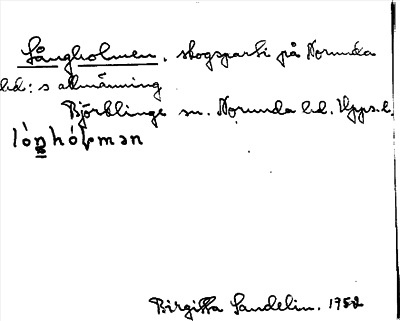 Långholmen, skogsparti på Norunda
hd:s allmänning
Björklinge sn. Norunda hd. Upps.l.
lòn̲hól̥mən
Birgitta Sandelin. 1952